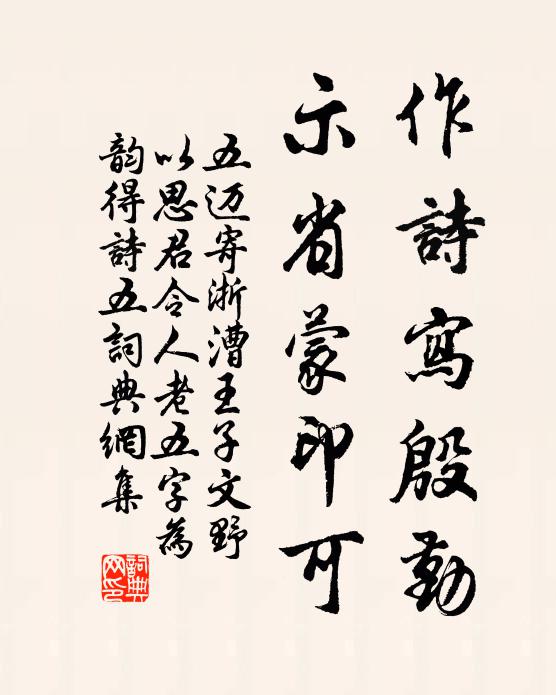 作詩寫殷勤
示省蒙印可
五迈寄浙漕王子文野
以思君令人老五字為
韵得詩五詞典網集
詞典網印